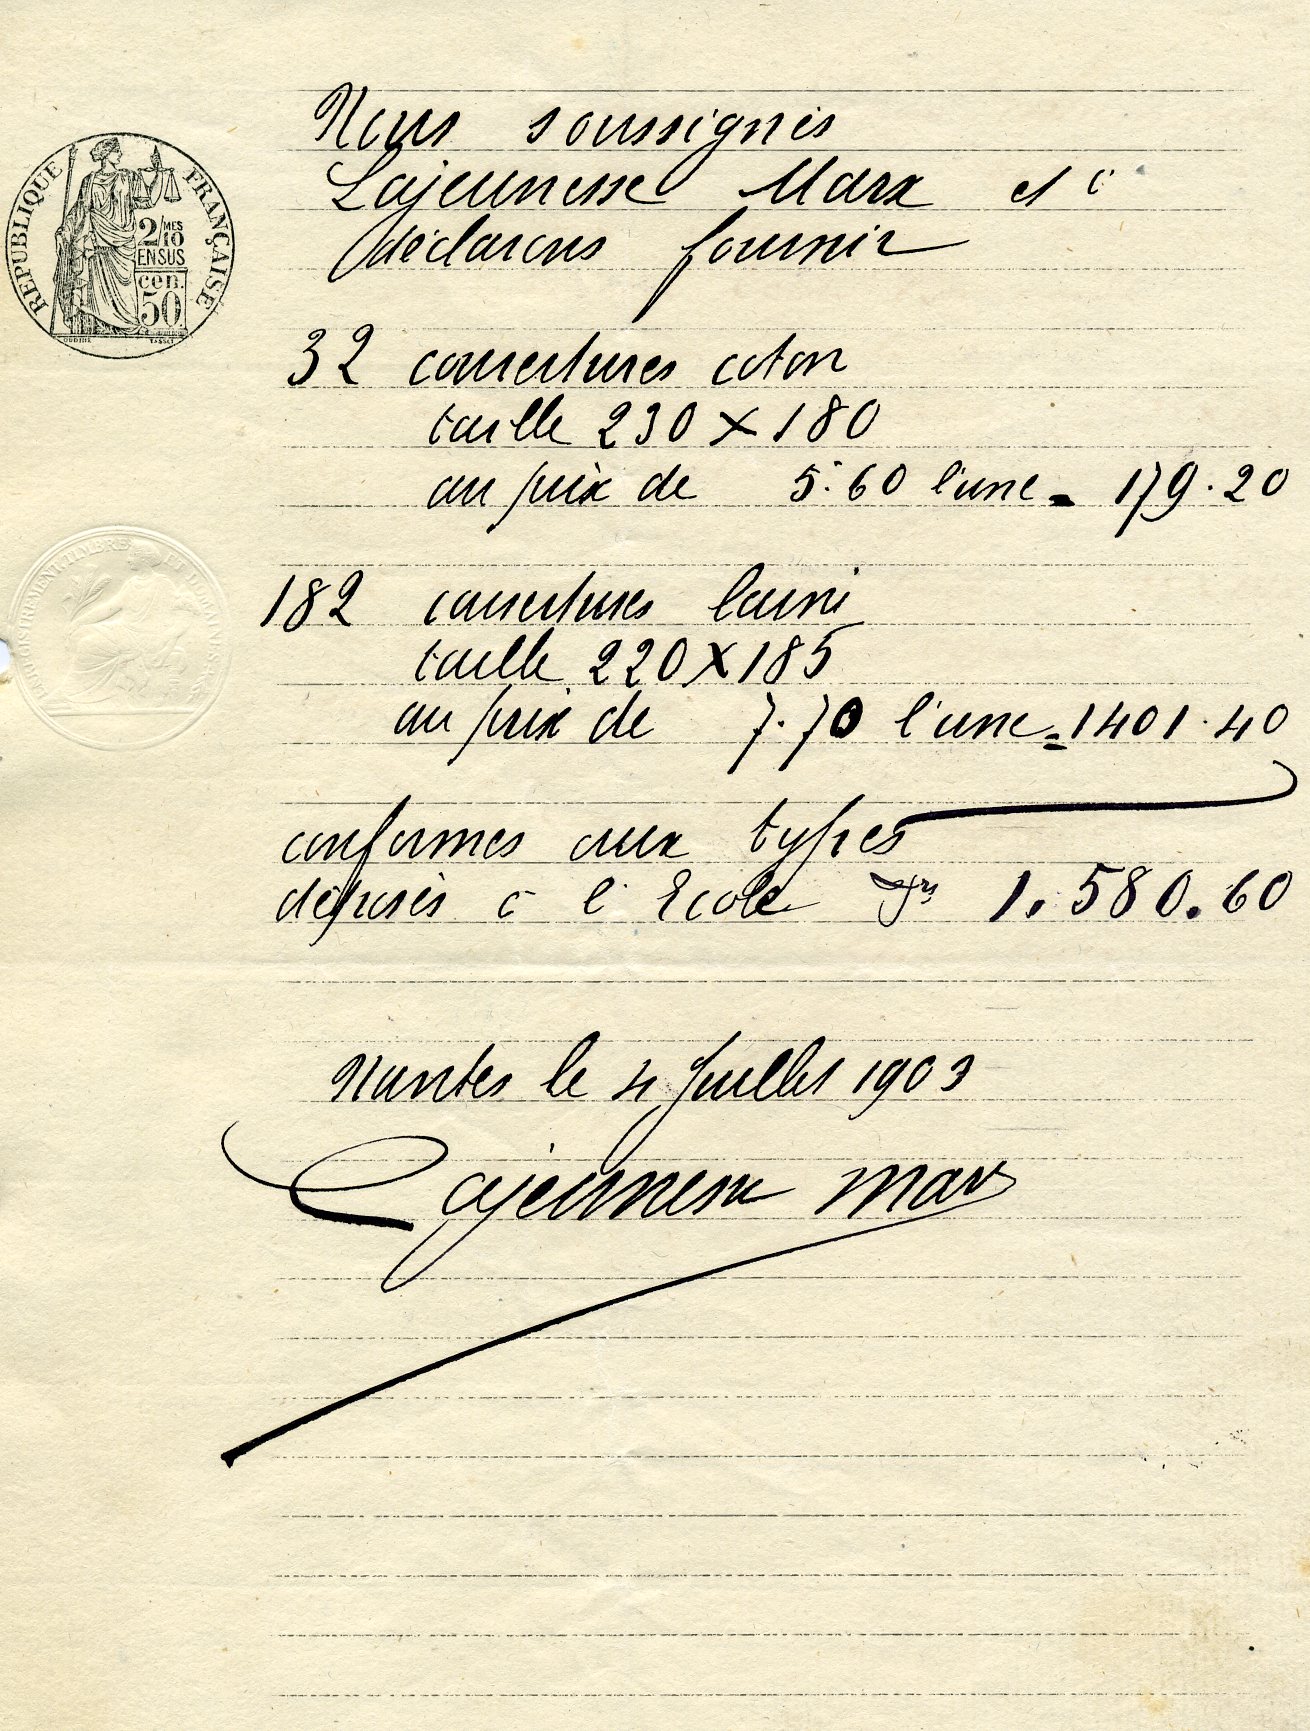 Nous soussignés
Lajeunesse Marx et Cie
déclarons fournir
RÉPUBLIQUE FRANÇAISE
2/10 MES
EN SUS
cen.
50
32 couvertures coton
taille 230 X 180
au prix de 5.60 l'une = 179.20
ENREGISTREMENT TIMBRE ET DOMAINES
182 couvertures laine
taille 220 X 185
au prix de 7.70 l'une = 1401.40
conformes aux types
déposés à l'Ecole frs 1.580.60
Nantes le 4 Juillet 1903
Lajeunesse Marx